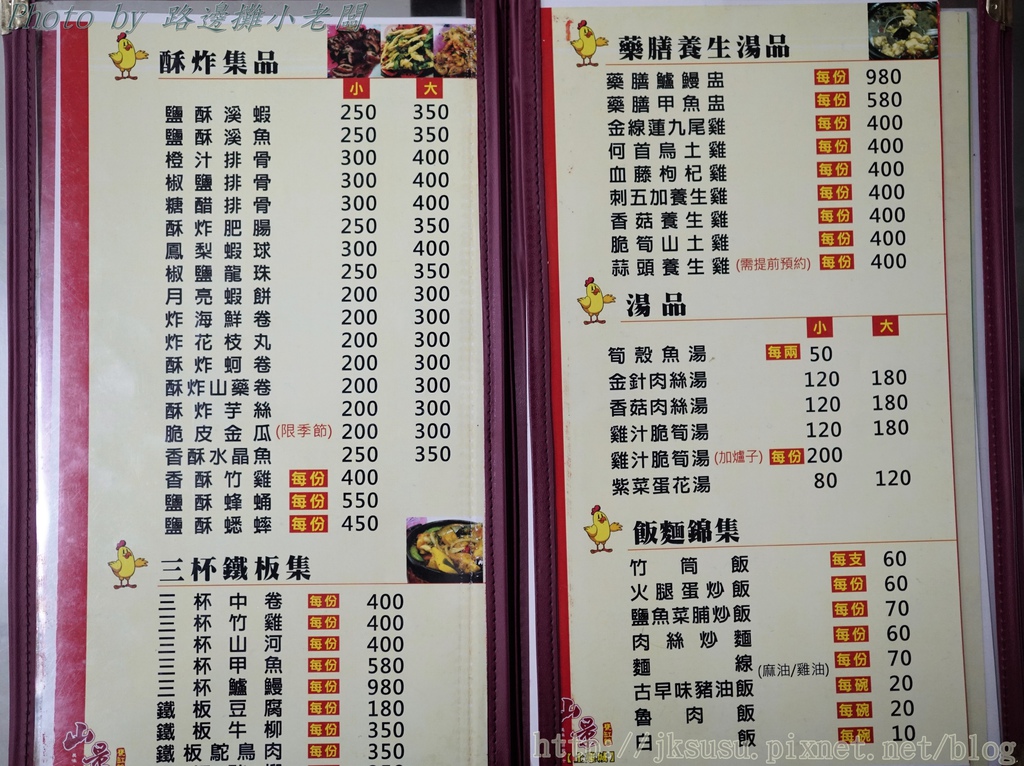 Photo by 路邊攤小老闆
酥炸集品
小 大
鹽酥溪蝦 250 350
鹽酥溪魚 250 350
橙汁排骨 300 400
椒鹽排骨 300 400
糖醋排骨 300 400
酥炸肥腸 250 350
鳳梨蝦球 300 400
椒鹽龍珠 250 350
月亮蝦餅 200 300
炸海鮮卷 200 300
炸花枝丸 200 300
酥炸蚵卷 200 300
酥炸山藥卷 200 300
酥炸芋絲 200 300
脆皮金瓜(限季節) 200 300
香酥水晶魚 250 350
香酥竹雞 每份 400
鹽酥蜂蛹 每份 550
鹽酥蟋蟀 每份 450
三杯鐵板集
三杯中卷 每份 400
三杯竹雞 每份 400
三杯山河 每份 400
三杯甲魚 每份 580
三杯鱸鰻 每份 980
鐵板豆腐 每份 180
鐵板牛柳 每份 350
鐵板鴕鳥肉 每份 350
藥膳養生湯品
藥膳鱸鰻盅 每份 980
藥膳甲魚盅 每份 580
金線蓮九尾雞 每份 400
何首烏土雞 每份 400
血藤枸杞雞 每份 400
刺五加養生雞 每份 400
香菇養生雞 每份 400
脆筍山土雞 每份 400
蒜頭養生雞(需提前預約) 每份 400
湯品
小 大
筍殼魚湯 每兩 50
金針肉絲湯 120 180
香菇肉絲湯 120 180
雞汁脆筍湯 120 180
雞汁脆筍湯(加爐子) 每份 200
紫菜蛋花湯 80 120
飯麵錦集
竹筒飯 每支 60
火腿蛋炒飯 每份 60
鹽魚菜脯炒飯 每份 70
肉絲炒麵 每份 60
麵線(麻油/雞油) 每份 70
古早味豬油飯 每碗 20
魯肉飯 每碗 20
白飯 每碗 10
http://jksusu.pixnet.net/blog